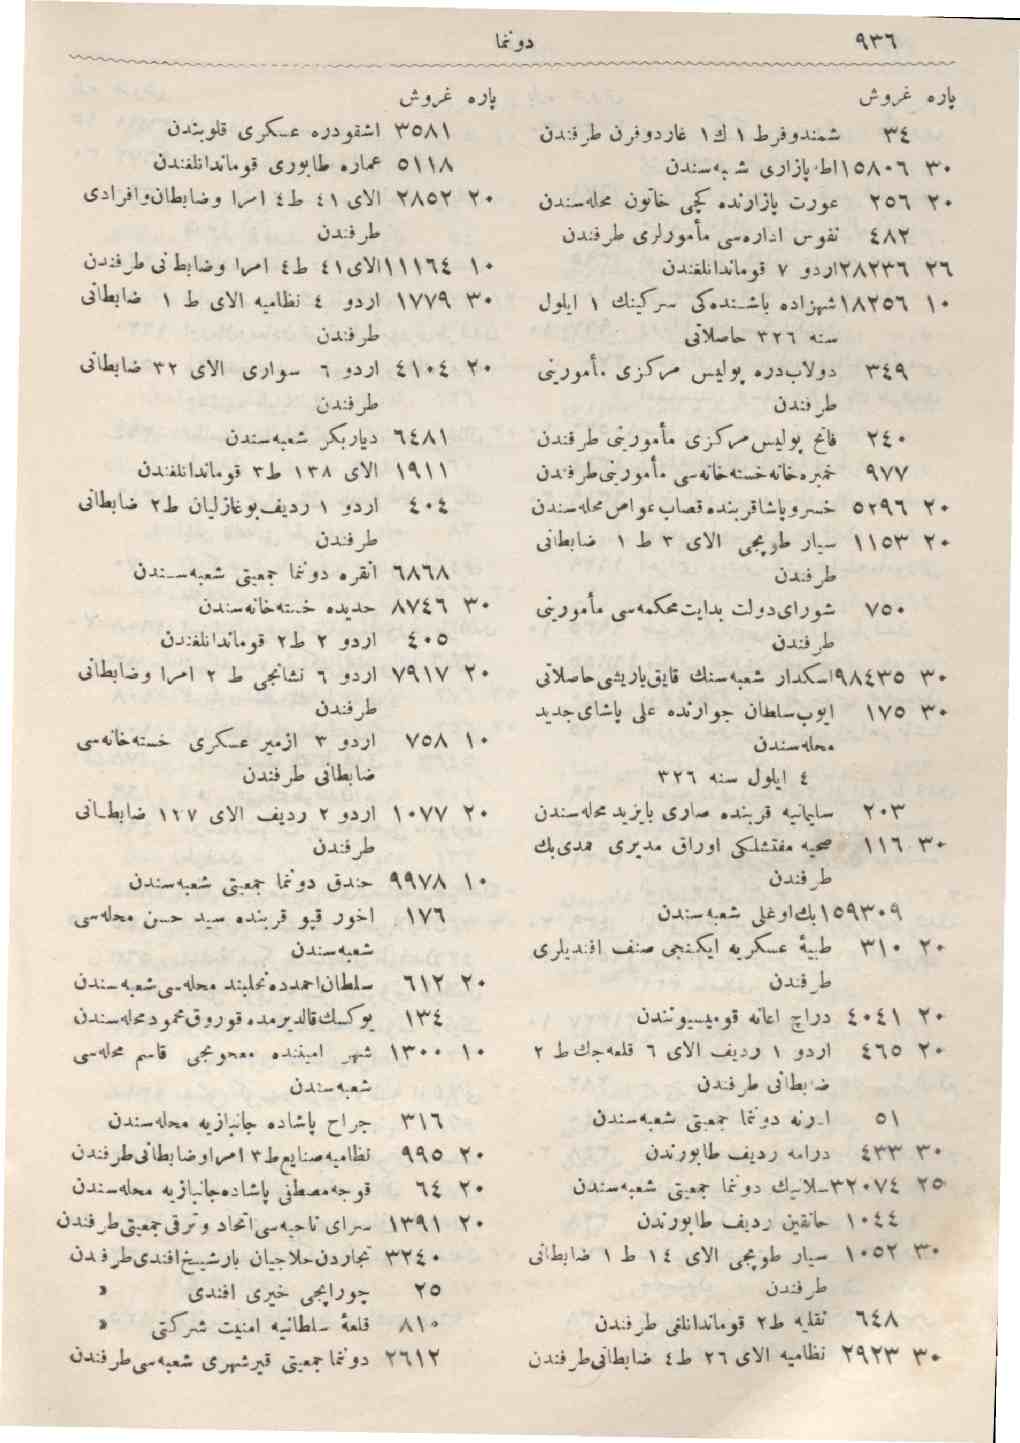 ٩٣٦
دونما
پاره غروش
٣٤ شمندوفر ط ١ ك ١ غاردوفرن طرفندن
٣٠ ١٥٨٠٦ اطه پازاری شعبه‌سندن
٢٠ ٢٥٦ عورت پازارنده كچی خاتون محله‌سندن
٤٨٢ نفوس اداره‌سی مأمورلری طرفندن
٢٦ ٢٨٢٣٦ اردو ٧ قوماندانلغندن
١٠ ١٨٢٥٦ شهزاده باشنده‌كی سركینك ١ ایلول
سنه ٣٢٦ حاصلاتی
٣٤٩ دولاب‌دره پولیس مركزی مأمورینی
طرفندن
٢٤٠ فاتح پولیس مركزی مأمورینی طرفندن
٩٧٧ خمبره‌خانه خسته‌خانه‌سی مأمورینی طرفندن
٢٠ ٥٢٩٦ خسرو پاشا قربنده قصاب عواص محله‌سندن
٢٠ ١١٥٣ سیار طوپجی الای ٣ ط ١ ضابطانی
طرفندن
٧٥٠ شورای دولت بدایت محكمه‌سی مأمورینی
طرفندن
٣٠ ٩٨٤٣٥ اسكدار شعبه‌سنك قایق یاریشی حاصلاتی
٣٠ ١٧٥ ایوب سلطان جوارنده علی پاشای جدید
محله‌سندن
٤ ایلول سنه ٣٢٦
٢٠٣ سلیمانیه قربنده صاری بایزید محله‌سندن
٣٠ ١١٦ صحیه مفتشلكی اوراق مدیری حمدی بك
طرفندن
١٥٩٣٠٩ بك اوغلی شعبه‌سندن
٢٠ ٣١٠ طبیهٔ عسكریه ایكنجی صنف افندیلری
طرفندن
٢٠ ٤٠٤١ دراچ اعانه قومیسیونندن
٢٠ ٤٦٥ اردو ١ ردیف الای ٦ قلعه‌جك ط ٢
ضابطانی طرفندن
٥١ ادرنه دونما جمعیتی شعبه‌سندن
٣٠ ٤٣٣ درامه ردیف طابورندن
٢٥ ٣٢٠٧٤ سلانیك دونما جمعیتی شعبه‌سندن
١٠٤٤ خانقین ردیف طابورندن
٣٠ ١٠٥٢ سیار طوپجی الای ١٤ ط ١ ضابطانی
طرفندن
٦٤٨ نقلیه ط ٢ قوماندانلغی طرفندن
٣٠ ٢٩٢٣ نظامیه الای ٢٦ ط ٤ ضابطانی طرفندن
پاره غروش
٣٥٨١ اشقودره عسكری قلوبندن
٥١١٨ عماره طابوری قوماندانلغندن
٢٠ ٢٨٥٢ الای ٤١ ط ٤ امرا وضابطان وافرادی
طرفندن
١٠ ١١١٦٤ الای ٤١ ط ٤ امرا وضابطانی طرفندن
٣٠ ١٧٧٩ اردو ٤ نظامیه الای ط ١ ضابطانی
طرفندن
٢٠ ٤١٠٤ اردو ٦ سواری الای ٣٢ ضابطانی
طرفندن
٦٤٨١ دیاربكر شعبه‌سندن
١٩١١ الای ١٣٨ ط ٣ قوماندانلغندن
٤٠٤ اردو ١ ردیف بوغازلیان ط ٢ ضابطانی
طرفندن
٦٨٦٨ انقره دونما جمعیتی شعبه‌سندن
٣٠ ٨٧٤٦ حدیده خسته‌خانه‌سندن
٤٠٥ اردو ٢ ط ٢ قوماندانلغندن
٢٠ ٧٩١٧ اردو ٦ نشانجی ط ٢ امرا وضابطانی
طرفندن
١٠ ٧٥٨ اردو ٣ ازمیر عسكری خسته‌خانه‌سی
ضابطانی طرفندن
٢٠ ١٠٧٧ اردو ٢ ردیف الای ١٢٧ ضابطانی
طرفندن
١٠ ٩٩٧٨ خندق دونما جمعیتی شعبه‌سندن
١٧٦ اخور قپو قربنده سید حسن محله‌سی
شعبه‌سندن
٢٠ ٦١٢ سلطان احمدده نخلبند محله‌سی شعبه‌سندن
١٣٤ یوكسك قالدیرمده قوروق محمود محله‌سندن
١٠ ١٣٠٠ شهر امیننده معجونجی قاسم محله‌سی
شعبه‌سندن
٣١٦ جراح پاشاده جانبازیه محله‌سندن
٢٠ ٩٩٥ نظامیه صنایع ط ٣ امرا وضابطانی طرفندن
٢٠ ٦٤ قوجه مصطفی پاشاده جانبازیه محله‌سندن
٢٠ ١٣٩١ سرای ناحیه‌سی اتحاد وترقی جمعیتی طرفندن
٣٢٤٠ تجاردن حلاجیان بارشیخ افندی طرفندن
٢٥ چوراپجی خیری افندی »
٨١٠ قلعهٔ سلطانیه امنیت شركتی »
٢٦١٢ دونما جمعیتی قیرشهری شعبه‌سی طرفندن